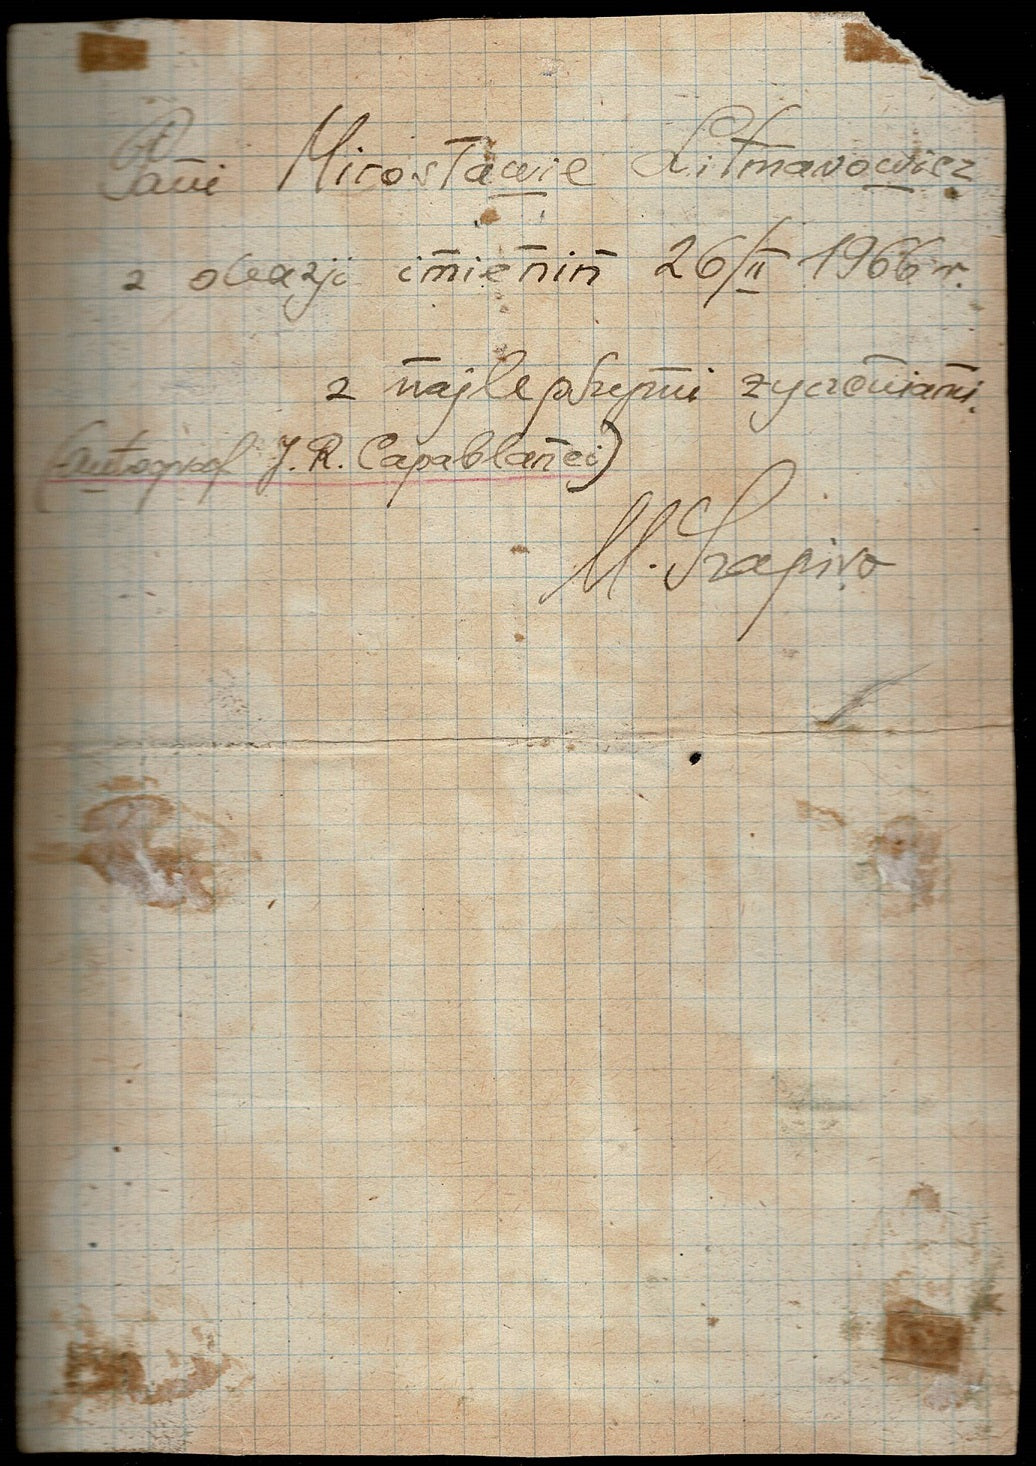 Pani Mirosławie Litmanowicz
z okazji imienin 26/II 1966 r.
z najlepszymi życzeniami.
(Autograf J. R. Capablanci)
M. Szapiro